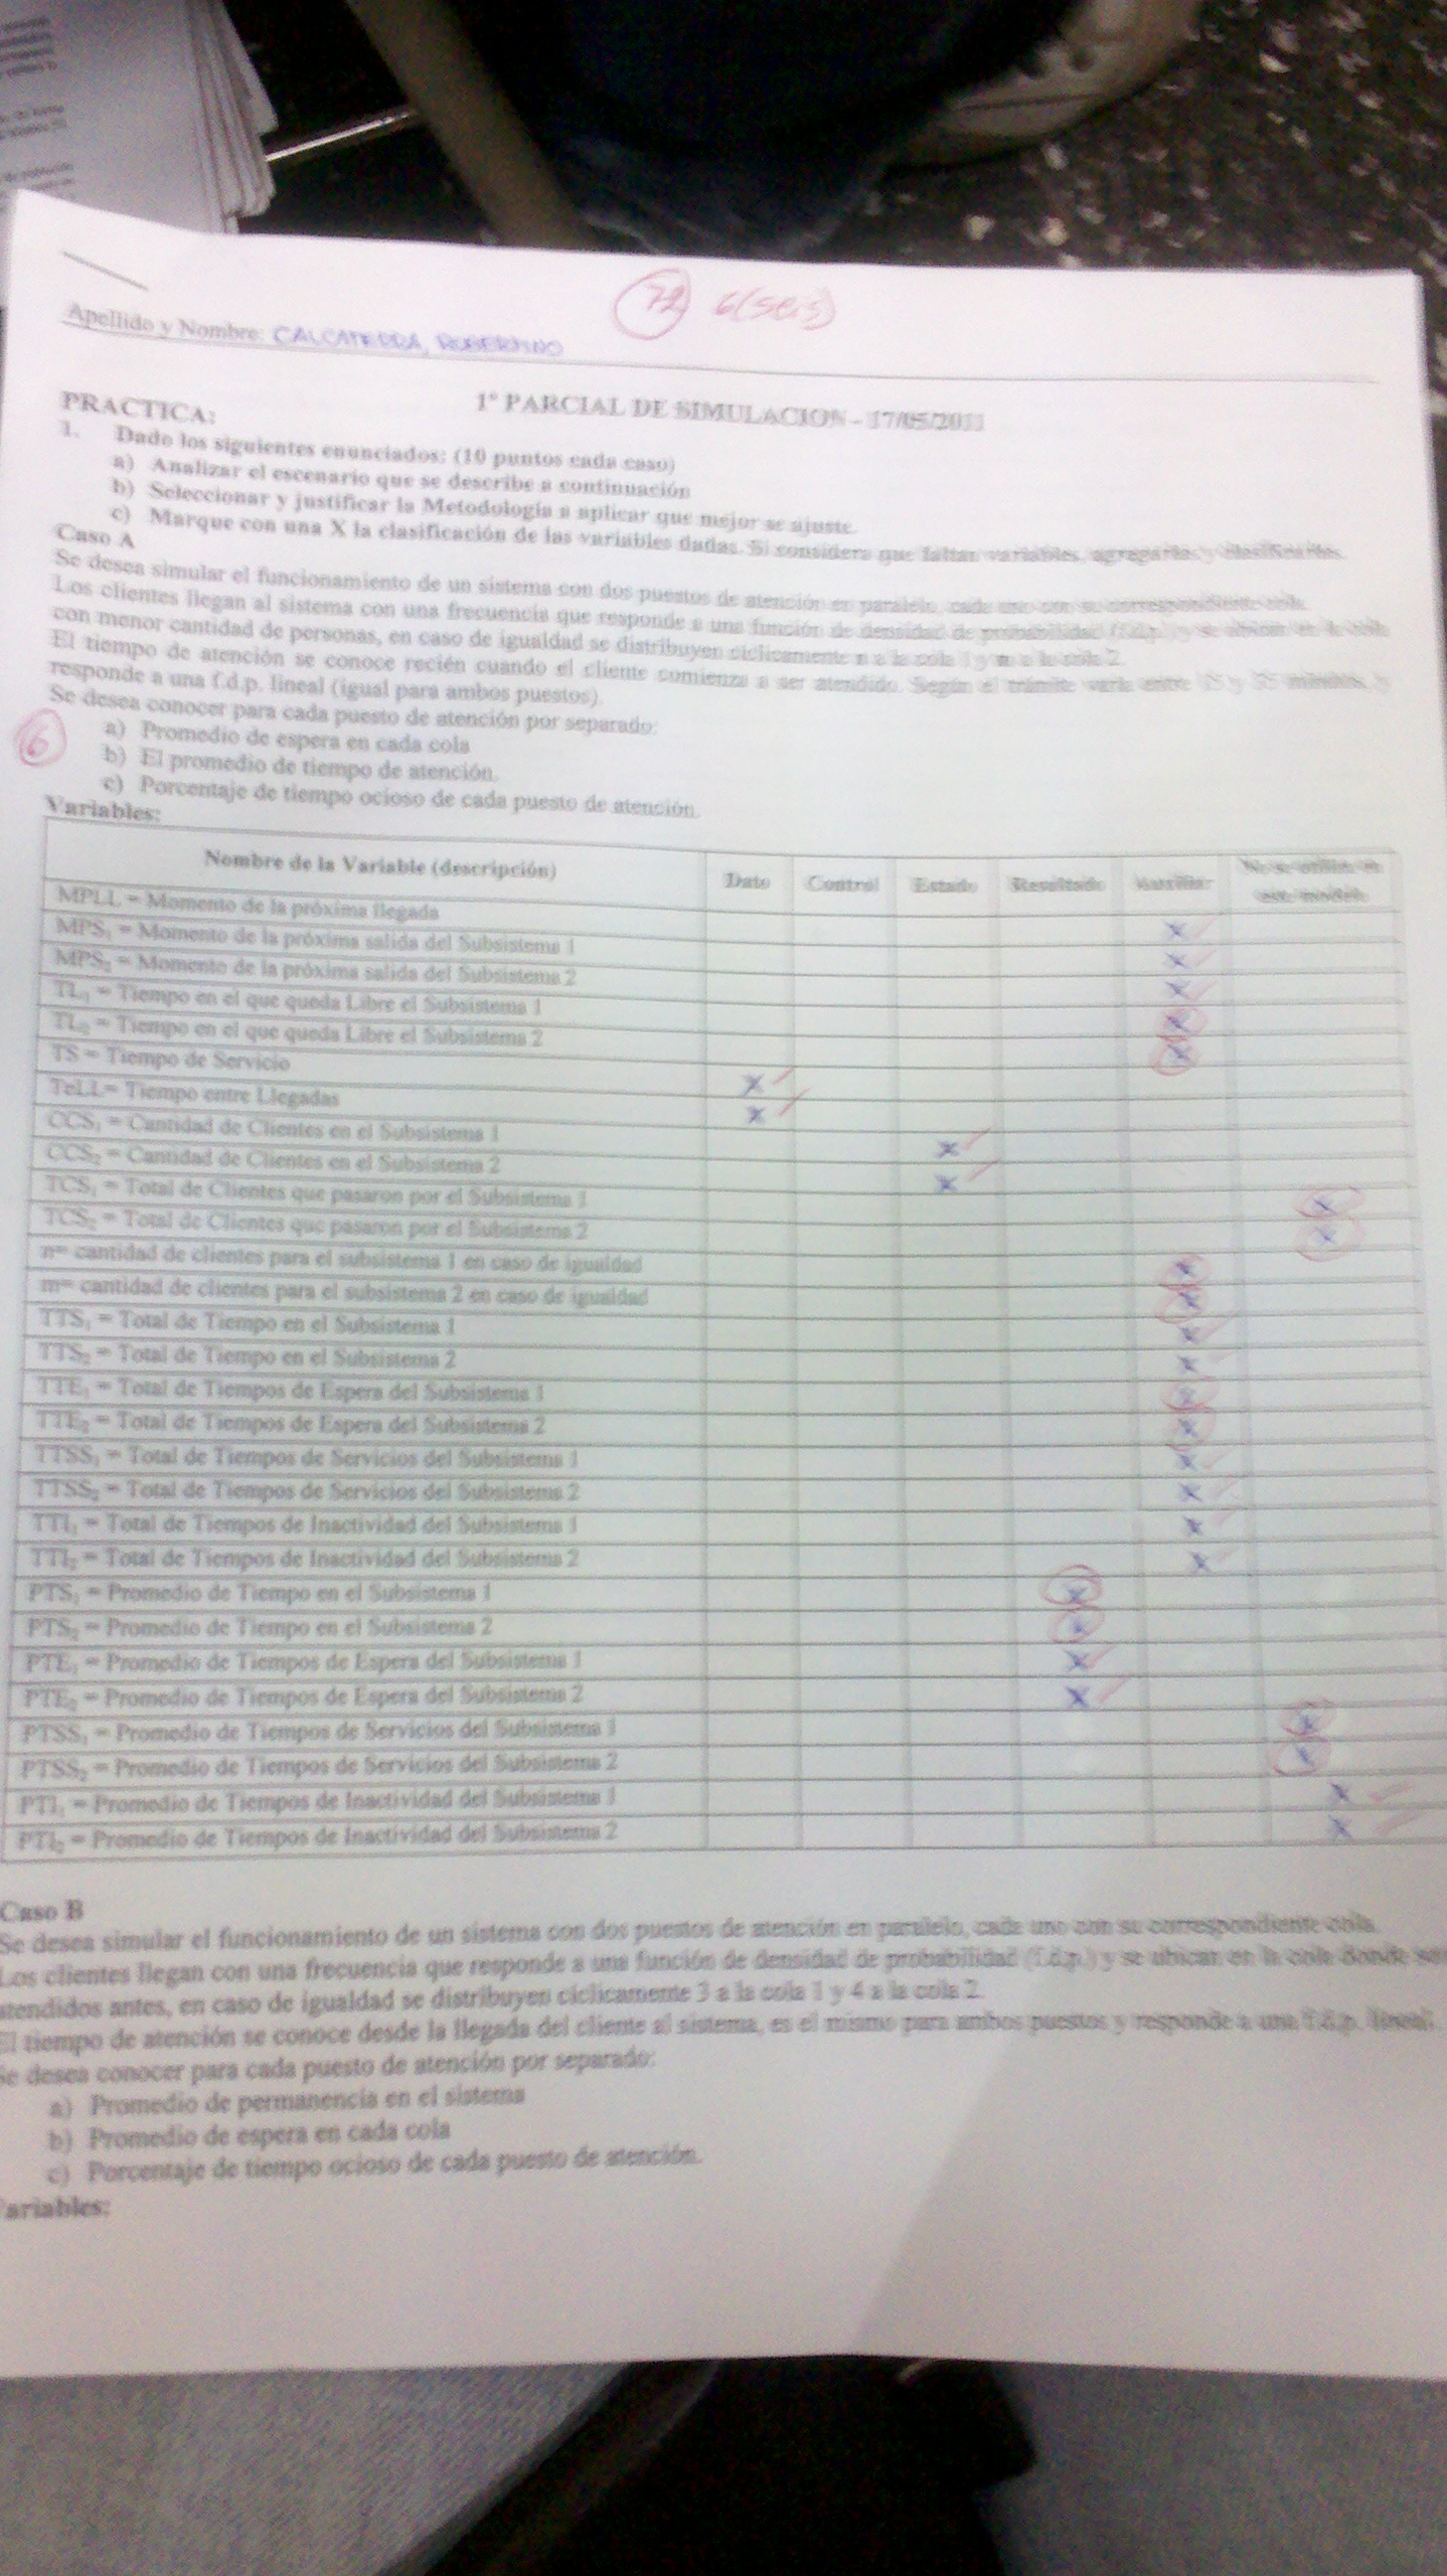 72 6(seis)
Apellido y Nombre: CALCATERRA, ROBERTINO
1º PARCIAL DE SIMULACION - 17/05/2011
PRACTICA:
1. Dado los siguientes enunciados: (10 puntos cada caso)
a) Analizar el escenario que se describe a continuación
b) Seleccionar y justificar la Metodología a aplicar que mejor se ajuste.
c) Marque con una X la clasificación de las variables dadas. Si considera que faltan variables, agregarlas y clasificarlas.
Caso A
Se desea simular el funcionamiento de un sistema con dos puestos de atención en paralelo, cada uno con su correspondiente cola.
Los clientes llegan al sistema con una frecuencia que responde a una función de densidad de probabilidad (f.d.p.) y se ubican en la cola
con menor cantidad de personas, en caso de igualdad se distribuyen cíclicamente n a la cola 1 y m a la cola 2.
El tiempo de atención se conoce recién cuando el cliente comienza a ser atendido. Según el trámite varía entre minutos y
responde a una f.d.p. lineal (igual para ambos puestos).
Se desea conocer para cada puesto de atención por separado:
6
a) Promedio de espera en cada cola
b) El promedio de tiempo de atención.
c) Porcentaje de tiempo ocioso de cada puesto de atención.
Variables:
Nombre de la Variable (descripción) Dato Control Estado Resultado Auxiliar No se utiliza en este modelo
MPLL = Momento de la próxima llegada X
MPS₁ = Momento de la próxima salida del Subsistema 1 X
MPS₂ = Momento de la próxima salida del Subsistema 2 X
TL₁ = Tiempo en el que queda Libre el Subsistema 1 X
TL₂ = Tiempo en el que queda Libre el Subsistema 2 X
TS = Tiempo de Servicio X
TeLL= Tiempo entre Llegadas X
CCS₁ = Cantidad de Clientes en el Subsistema 1 X
CCS₂ = Cantidad de Clientes en el Subsistema 2 X
TCS₁ = Total de Clientes que pasaron por el Subsistema 1 X
TCS₂ = Total de Clientes que pasaron por el Subsistema 2 X
n= cantidad de clientes para el subsistema 1 en caso de igualdad X
m= cantidad de clientes para el subsistema 2 en caso de igualdad X
TTS₁ = Total de Tiempo en el Subsistema 1 X
TTS₂ = Total de Tiempo en el Subsistema 2 X
TTE₁ = Total de Tiempos de Espera del Subsistema 1 X
TTE₂ = Total de Tiempos de Espera del Subsistema 2 X
TTSS₁ = Total de Tiempos de Servicios del Subsistema 1 X
TTSS₂ = Total de Tiempos de Servicios del Subsistema 2 X
TTI₁ = Total de Tiempos de Inactividad del Subsistema 1 X
TTI₂ = Total de Tiempos de Inactividad del Subsistema 2 X
PTS₁ = Promedio de Tiempo en el Subsistema 1 X
PTS₂ = Promedio de Tiempo en el Subsistema 2 X
PTE₁ = Promedio de Tiempos de Espera del Subsistema 1 X
PTE₂ = Promedio de Tiempos de Espera del Subsistema 2 X
PTSS₁ = Promedio de Tiempos de Servicios del Subsistema 1 X
PTSS₂ = Promedio de Tiempos de Servicios del Subsistema 2 X
PTI₁ = Promedio de Tiempos de Inactividad del Subsistema 1 X
PTI₂ = Promedio de Tiempos de Inactividad del Subsistema 2 X
Caso B
Se desea simular el funcionamiento de un sistema con dos puestos de atención en paralelo, cada uno con su correspondiente cola.
Los clientes llegan con una frecuencia que responde a una función de densidad de probabilidad (f.d.p.) y se ubican en la cola donde
atendidos antes, en caso de igualdad se distribuyen cíclicamente 3 a la cola 1 y 4 a la cola 2.
El tiempo de atención se conoce desde la llegada del cliente al sistema, es el mismo para ambos puestos y responde a una f.d.p. lineal.
Se desea conocer para cada puesto de atención por separado:
a) Promedio de permanencia en el sistema
b) Promedio de espera en cada cola
c) Porcentaje de tiempo ocioso de cada puesto de atención.
ariables: